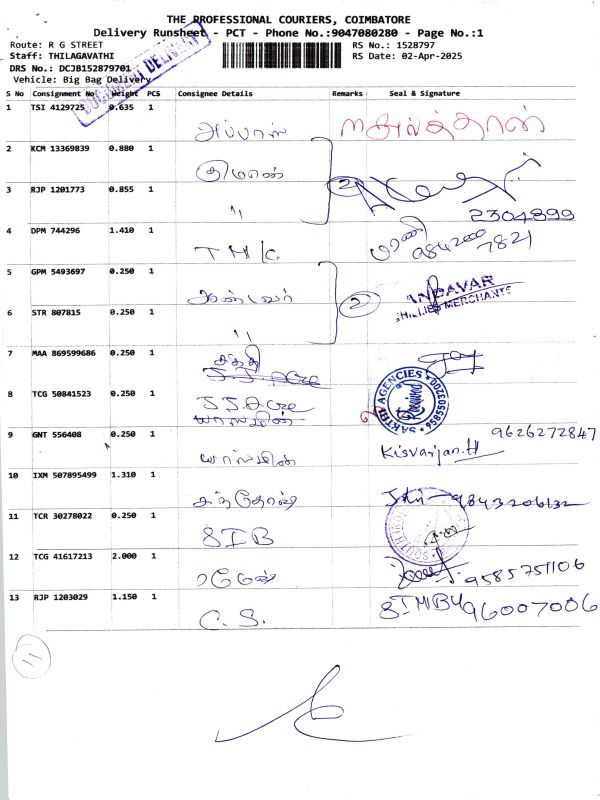 THE PROFESSIONAL COURIERS, COIMBATORE
Delivery Runsheet - PCT - Phone No.:9047080280 - Page No.:1
Route: R G STREET RS No.: 1528797
Staff: THILAGAVATHI RS Date: 02-Apr-2025
DRS No.: DCJB152879701
Vehicle: Big Bag Delivery
DOCUMENT DELIVERY
S No Consignment No Weight PCS Consignee Details Remarks Seal & Signature
1 TSI 4129725 0.635 1
அப்பாஸ்
2 KCM 13369839 0.880 1
2
3 RJP 1201773 0.855 1
" 2304899
4 DPM 744296 1.410 1
T M/C. ராணி
7821
5 GPM 5493697 0.250 1
ANDAVAR
2 CHILLIES MERCHANTS
6 STR 807815 0.250 1
"
7 MAA 869599686 0.250 1
சக்தி
8 TCG 50841523 0.250 1
J.J.Acre
SAKTHI AGENCIES Received
9 GNT 556408 0.250 1 9626272847
யாஸ்மின் Kisvarjan.H
10 IXM 507895499 1.310 1
சந்தோஷ் 9843206132
11 TCR 30278022 0.250 1
SIB
12 TCG 41617213 2.000 1
ரமேஷ் 9585751106
13 RJP 1203029 1.150 1
C. S. 96007006
11